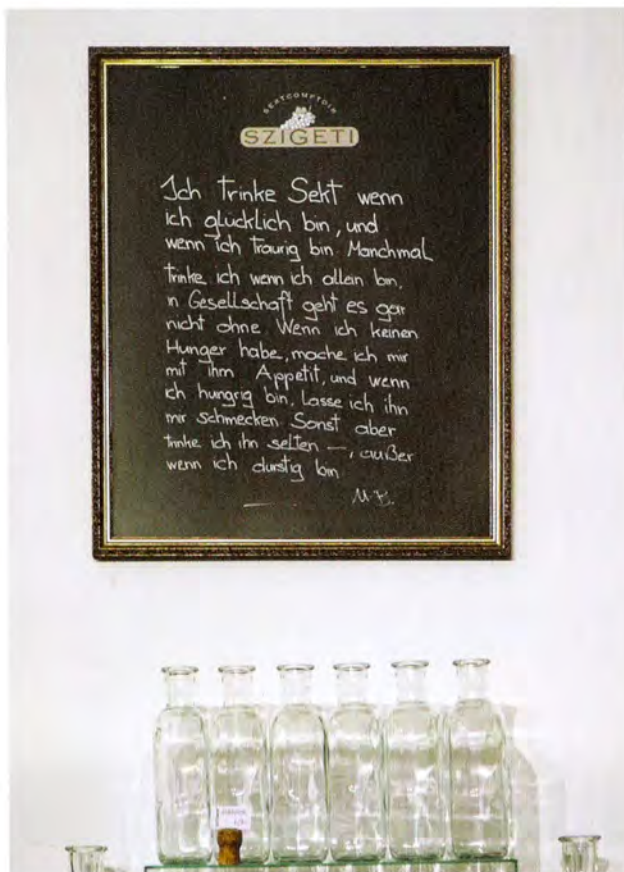 SEKTCOMPTOIR
SZIGETI
Ich trinke Sekt wenn
ich glücklich bin, und
wenn ich traurig bin. Manchmal
trinke ich wenn ich allein bin,
in Gesellschaft geht es gar
nicht ohne. Wenn ich keinen
Hunger habe, mache ich mir
mit ihm Appetit, und wenn
ich hungrig bin, lasse ich ihn
mir schmecken. Sonst aber
trinke ich ihn selten —, außer
wenn ich durstig bin